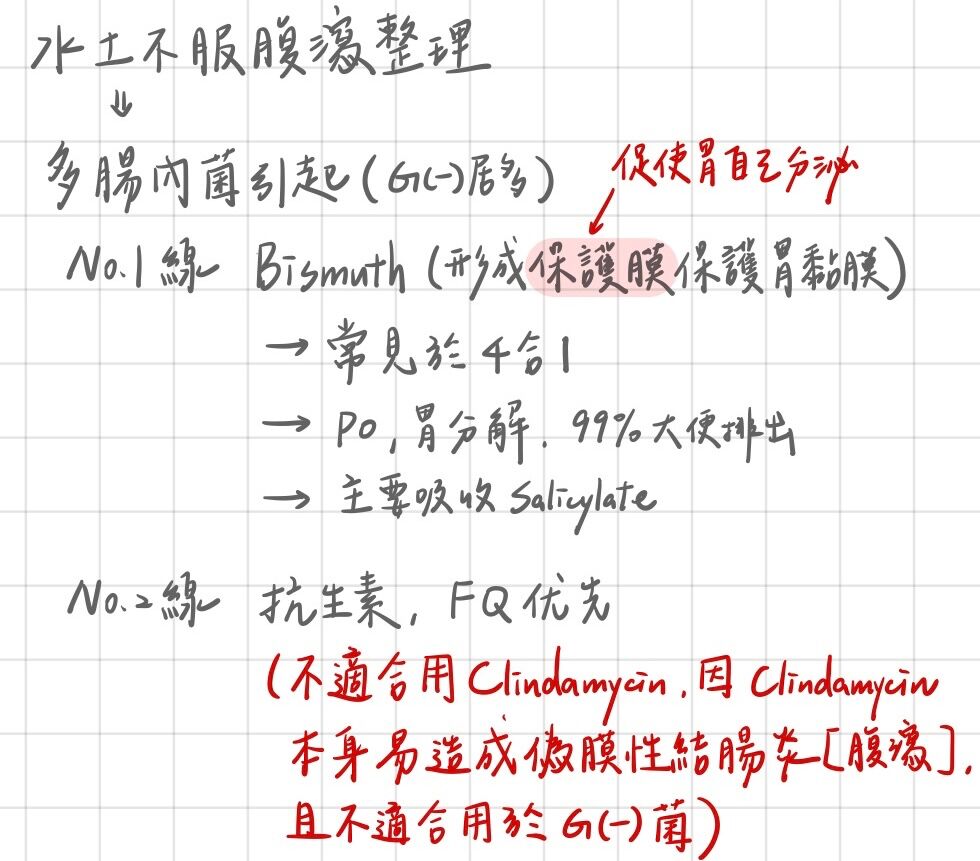 水土不服腹瀉整理
⇓
多腸內菌引起(G(-)居多)
促使胃自己分泌
No.1線 Bismuth (形成保護膜保護胃黏膜)
→ 常見於4合1
→ PO,胃分解.99%大便排出
→ 主要吸收 Salicylate
No.2線 抗生素, FQ优先
(不適合用 Clindamycin.因 Clindamycin
本身易造成偽膜性結腸炎[腹瀉].
且不適合用於 G(-)菌)